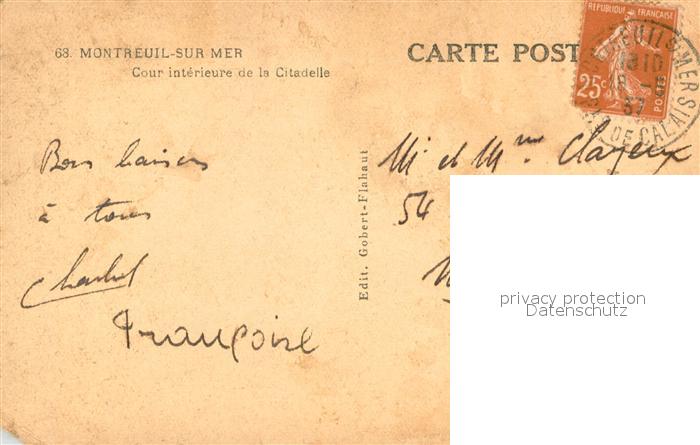 63. MONTREUIL-SUR MER
Cour intérieure de la Citadelle
CARTE POST
REPUBLIQUE FRANÇAISE
25c
POSTES
MONTREUIL S MER
1810
37
PAS DE CALAIS
Bons baisers
à tous
Françoise
Edit. Gobert-Flahaut
Mr et Mme
54
privacy protection
Datenschutz